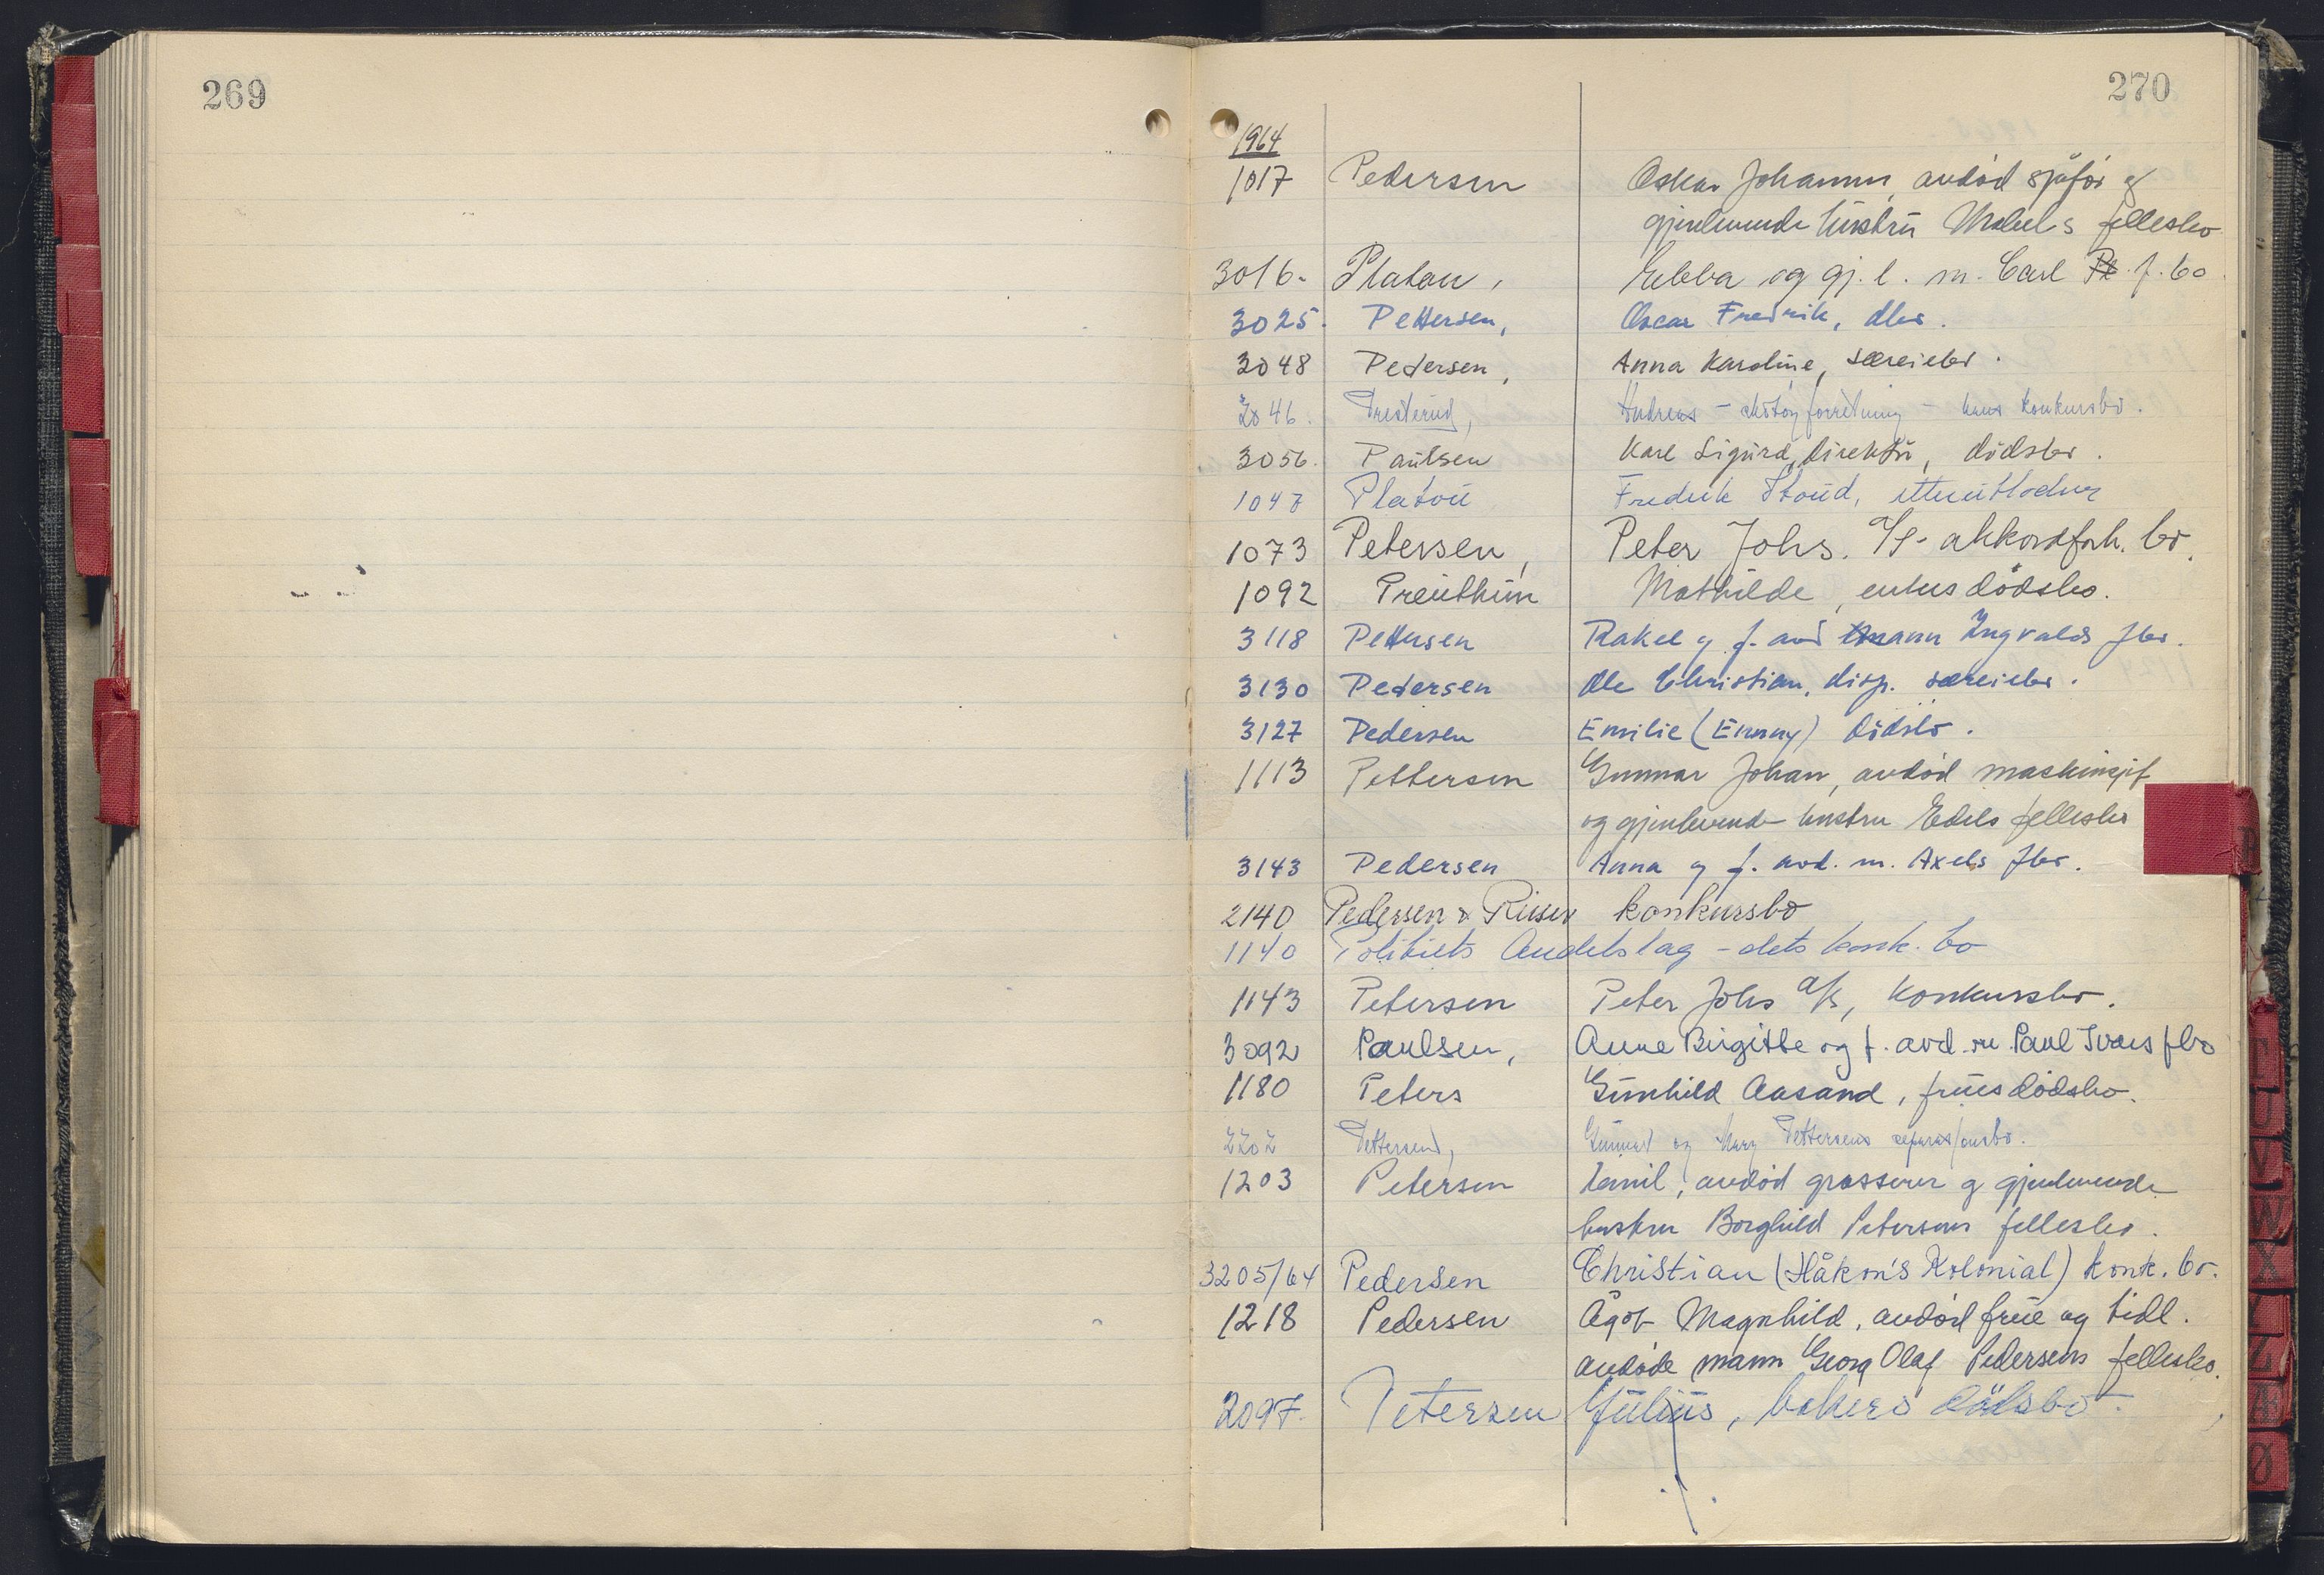 269
270
1964
1017 Pedersen Oskar Johannes, avdød sjåfør og
gjenlevende hustru Mabels fellesbo
3016. Platou, Ebba og gj. l. m. Carl Pl. f. bo.
3025. Pettersen, Oscar Fredrik, dbo.
3048 Pedersen, Anna Karoline, særeiebo.
2046. Presterud, Andreas - forretning - hans konkursbo.
3056. Paulsen Karl Sigurd, direktør, dødsbo.
1047 Platou Fredrik Stoud,
1073 Petersen, Peter Johs. A/S - akkordforh. bo.
1092 Preuthun Mathilde, enkes dødsbo.
3118 Pettersen Rakel og f. avd mann Ingvalds fbo.
3130 Pedersen Ole Christian, disp. særeiebo.
3127 Pedersen Emilie (Emmy) dødsbo.
1113 Pettersen Gunnar Johan, avdød maskinsjef
og gjenlevende hustru Edels fellesbo
3143 Pedersen Anna og f. avd. m. Axels fbo.
2140 Pedersen & Riiser konkursbo
1140 Politiets Andelslag - dets konk. bo
1143 Petersen Peter Johs A/S, konkursbo.
3092 Paulsen, Anne Birgitte og f. avd. m Paul Ivars fbo
1180 Peters Gunhild Aasand, frues dødsbo.
2202 Pettersen, Gunnar og Mary Pettersens separasjonsbo.
1203 Petersen Emil, avdød grosserer og gjenlevende
hustru Borghild Petersens fellesbo.
3205/64 Pedersen Christian (Håkon's Kolonial) konk. bo.
1218 Pedersen Ågot Magnhild, avdød frue og tidl.
avdøde mann Georg Olaf Pedersens fellesbo.
2097. Petersen Julius, bakers dødsbo.
P
T
U
V
W
X
Y
Z
Æ
Ø